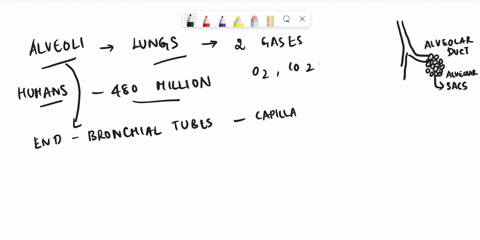 ALVEOLI → LUNGS → 2 GASES
O2, CO2
HUMANS - 480 MILLION
END - BRONCHIAL TUBES - CAPILLA
ALVEOLAR
DUCT
ALVEOLAR
SACS